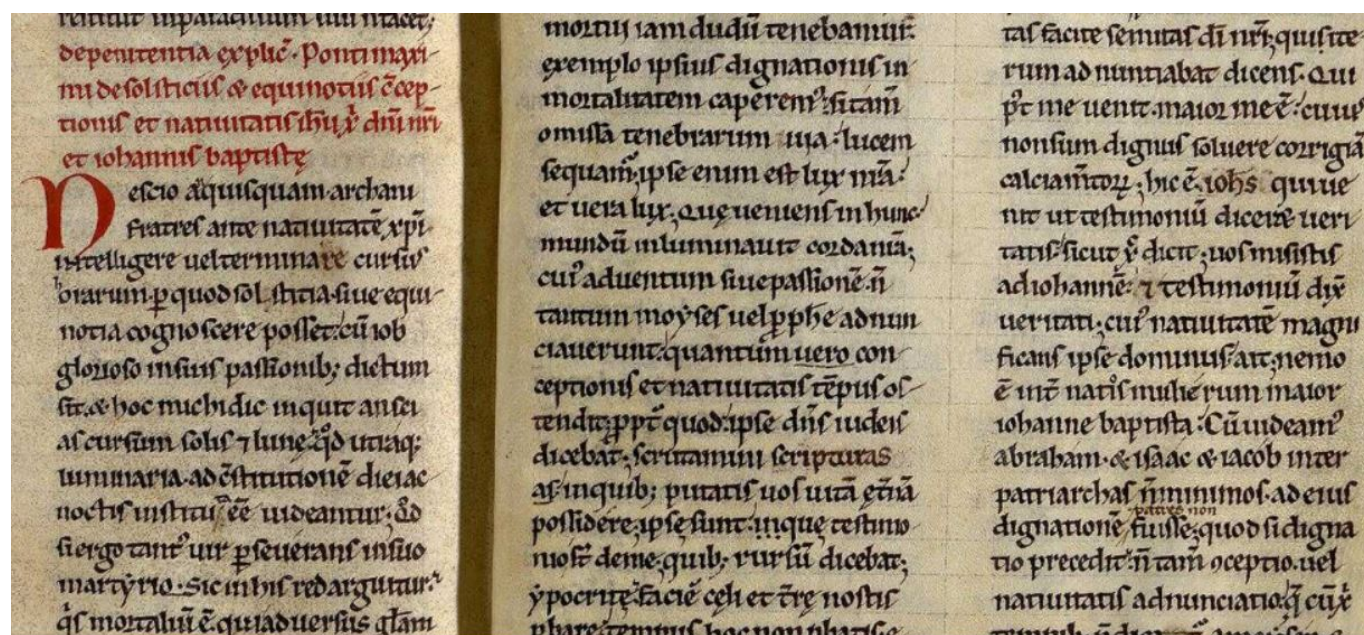 depenitentia explic̄. Ponti maxi-
mi desolsticiis & equinotiis c̄cep-
tionis et natiuitatis ih̄u x̄ dn̄i nr̄i
et iohannis baptistę
Nescio aq̄uisquam archani
fratres ante natiuitatē xp̄i
intelligere uelterminare cursus
horarum. ꝑ quod solstitia. siue equi-
notia cognoscere posset. cū iob
glorioso insuis passionib; dictum
sit. & hoc michi dic inquit ansci
as cursum solis ⁊ lunę. q̄d utraq;
luminaria. ad c̄stitutionē diei ac
noctis institu ēē uideantur. q̄d
si ergo tant᾽ uir ꝑseuerans insuo
martẏrio. Sic in his redarguitur.
q̄s mortaliū ē. qui aduersus gl̄am
mortui iam dudū tenebamur.
exemplo ipsius dignationis in
mortalitatem caperem᾽. sitam̄
omissa tenebrarum uia. lucem
sequam̄. ipse enim est lux nr̄a.
et uera lux. Quę ueniens in hunc
mundū inluminauit cordania;
cui᾽ aduentum siue passionē n̄
tantum moẏses uel ꝓphe adnun
ciauerunt. quantum uero con
ceptionis et natiuitatis tēpus os-
tendit; ꝓpt̄ quod. ipse dn̄s iudeis
dicebat; scrutamini scripturas
as. inquib; putatis uos uitā ęt̄nā
possidere. ipsę sunt. inque testimo
niost̄ deme. quib; rursū dicebat;
ẏpocritę. faciē cęli et t̄rę nostis
tas facite semitas dī nr̄i; quisite-
rum ad nuntiabat dicens. Qui
p̄t me uenit. maior me ē. cuius
nonsum dignus soluere corrigiā
calciam̄toꝝ; hic ē. ioh̄s qui ue
nit ut testimoniū diceret ueri
tatis. sicut x̄ dicit; uos misistis
ad iohannē. ⁊ testimoniū dix̄
ueritati; cui᾽ natiuitatē magni
ficans ipse dominus. ait; nemo
ē int̄ natos mulierum maior
iohanne baptista. Cū uideam᾽
abraham. & isaac & iacob inter
patriarchas n̄minimos. ad eius
patres non
dignationē fuisse; quod si digna
tio precedit. n̄ tam̄ ɔceptio. uel
natiuitatis adnunciatio. q̄ cū x̄